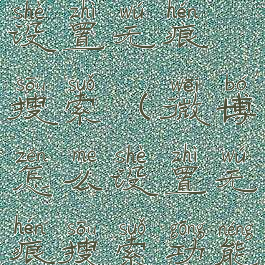 shè zhì wú hén
设置无痕
sōu suǒ wēi bó
搜索(微博
zěn me shè zhì wú
怎么设置无
hén sōu suǒ gōng néng
痕搜索功能